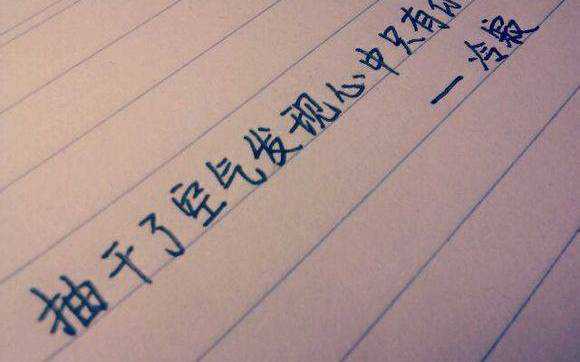 抽干了空气发现心中只有你
一 冷寂